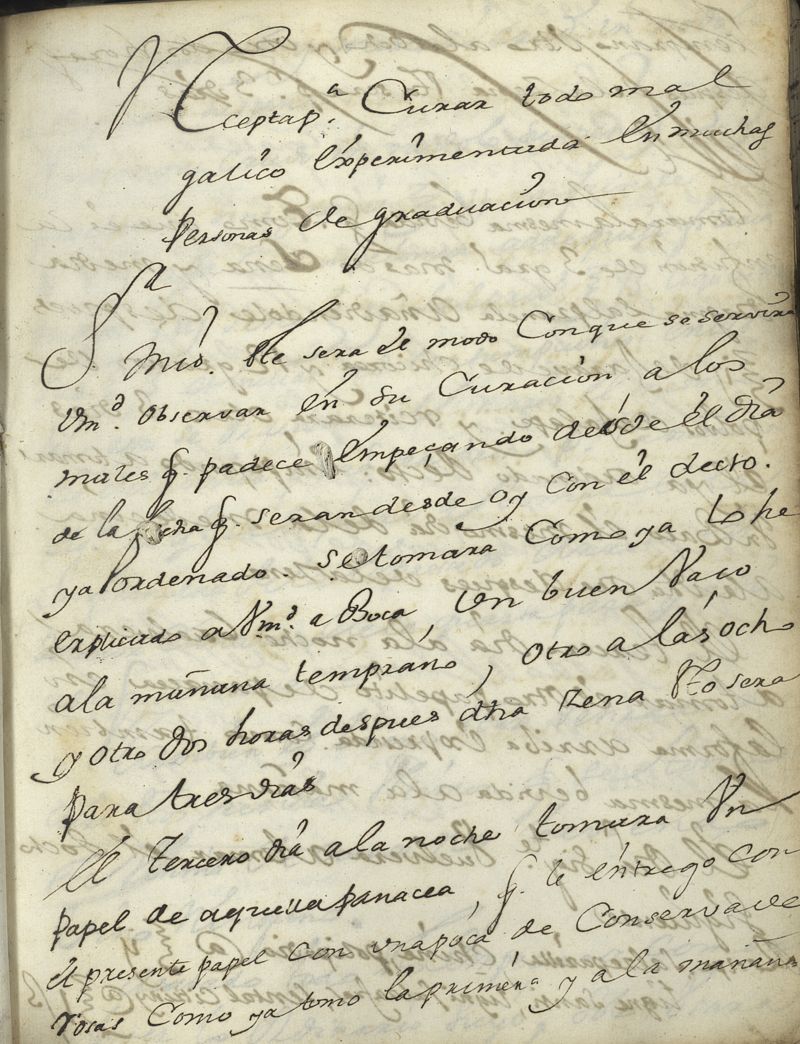 Rceptap.ª Curar todo mal
galico Experimentada En muchas
personas de graduacion
S.r Mio. Este sera el modo Con que se servira
Vm.d observar En su Curacion a los
males q. padece Empeçando desde El dia
de la fecha q. seran desde oy Con el decto.
ya ordenado. Se tomara Como ya lo he
Explicado a Vm.d a Boca, Un buen Vaso
a la mañana temprano, otro a las ocho
y otro dos horas despues dha Zena Esto sera
para tres dias
El tercero dia a la noche tomara Vn
papel de aquella panacea, q. le entrego con
el presente papel con vna poca de Conserva de
rosas Como ya tomo la primera y a la mañana